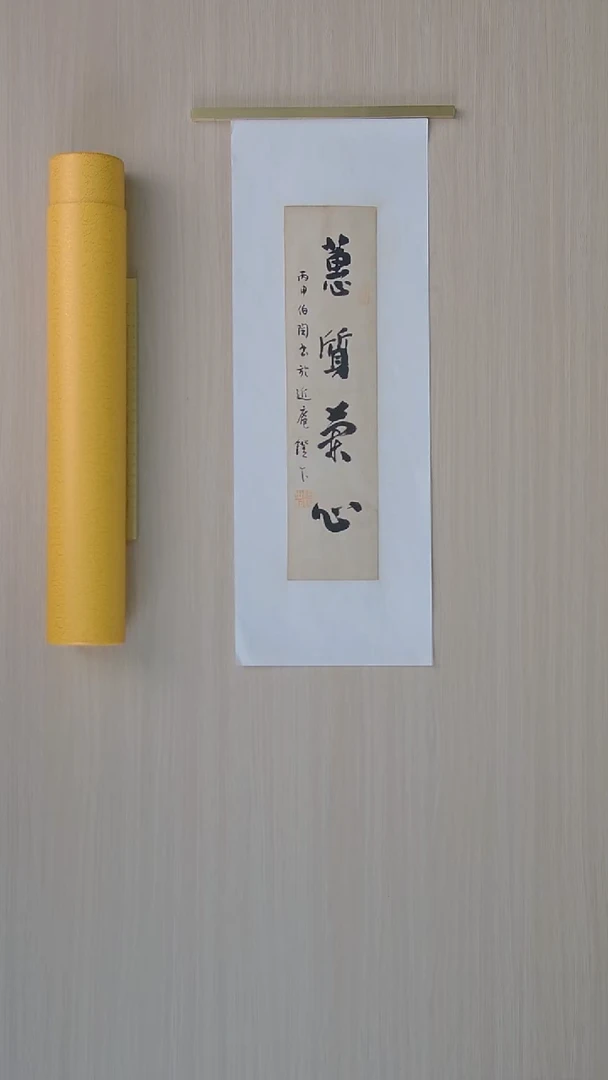 蕙質蘭心
丙申伯陶書於近庵燈下